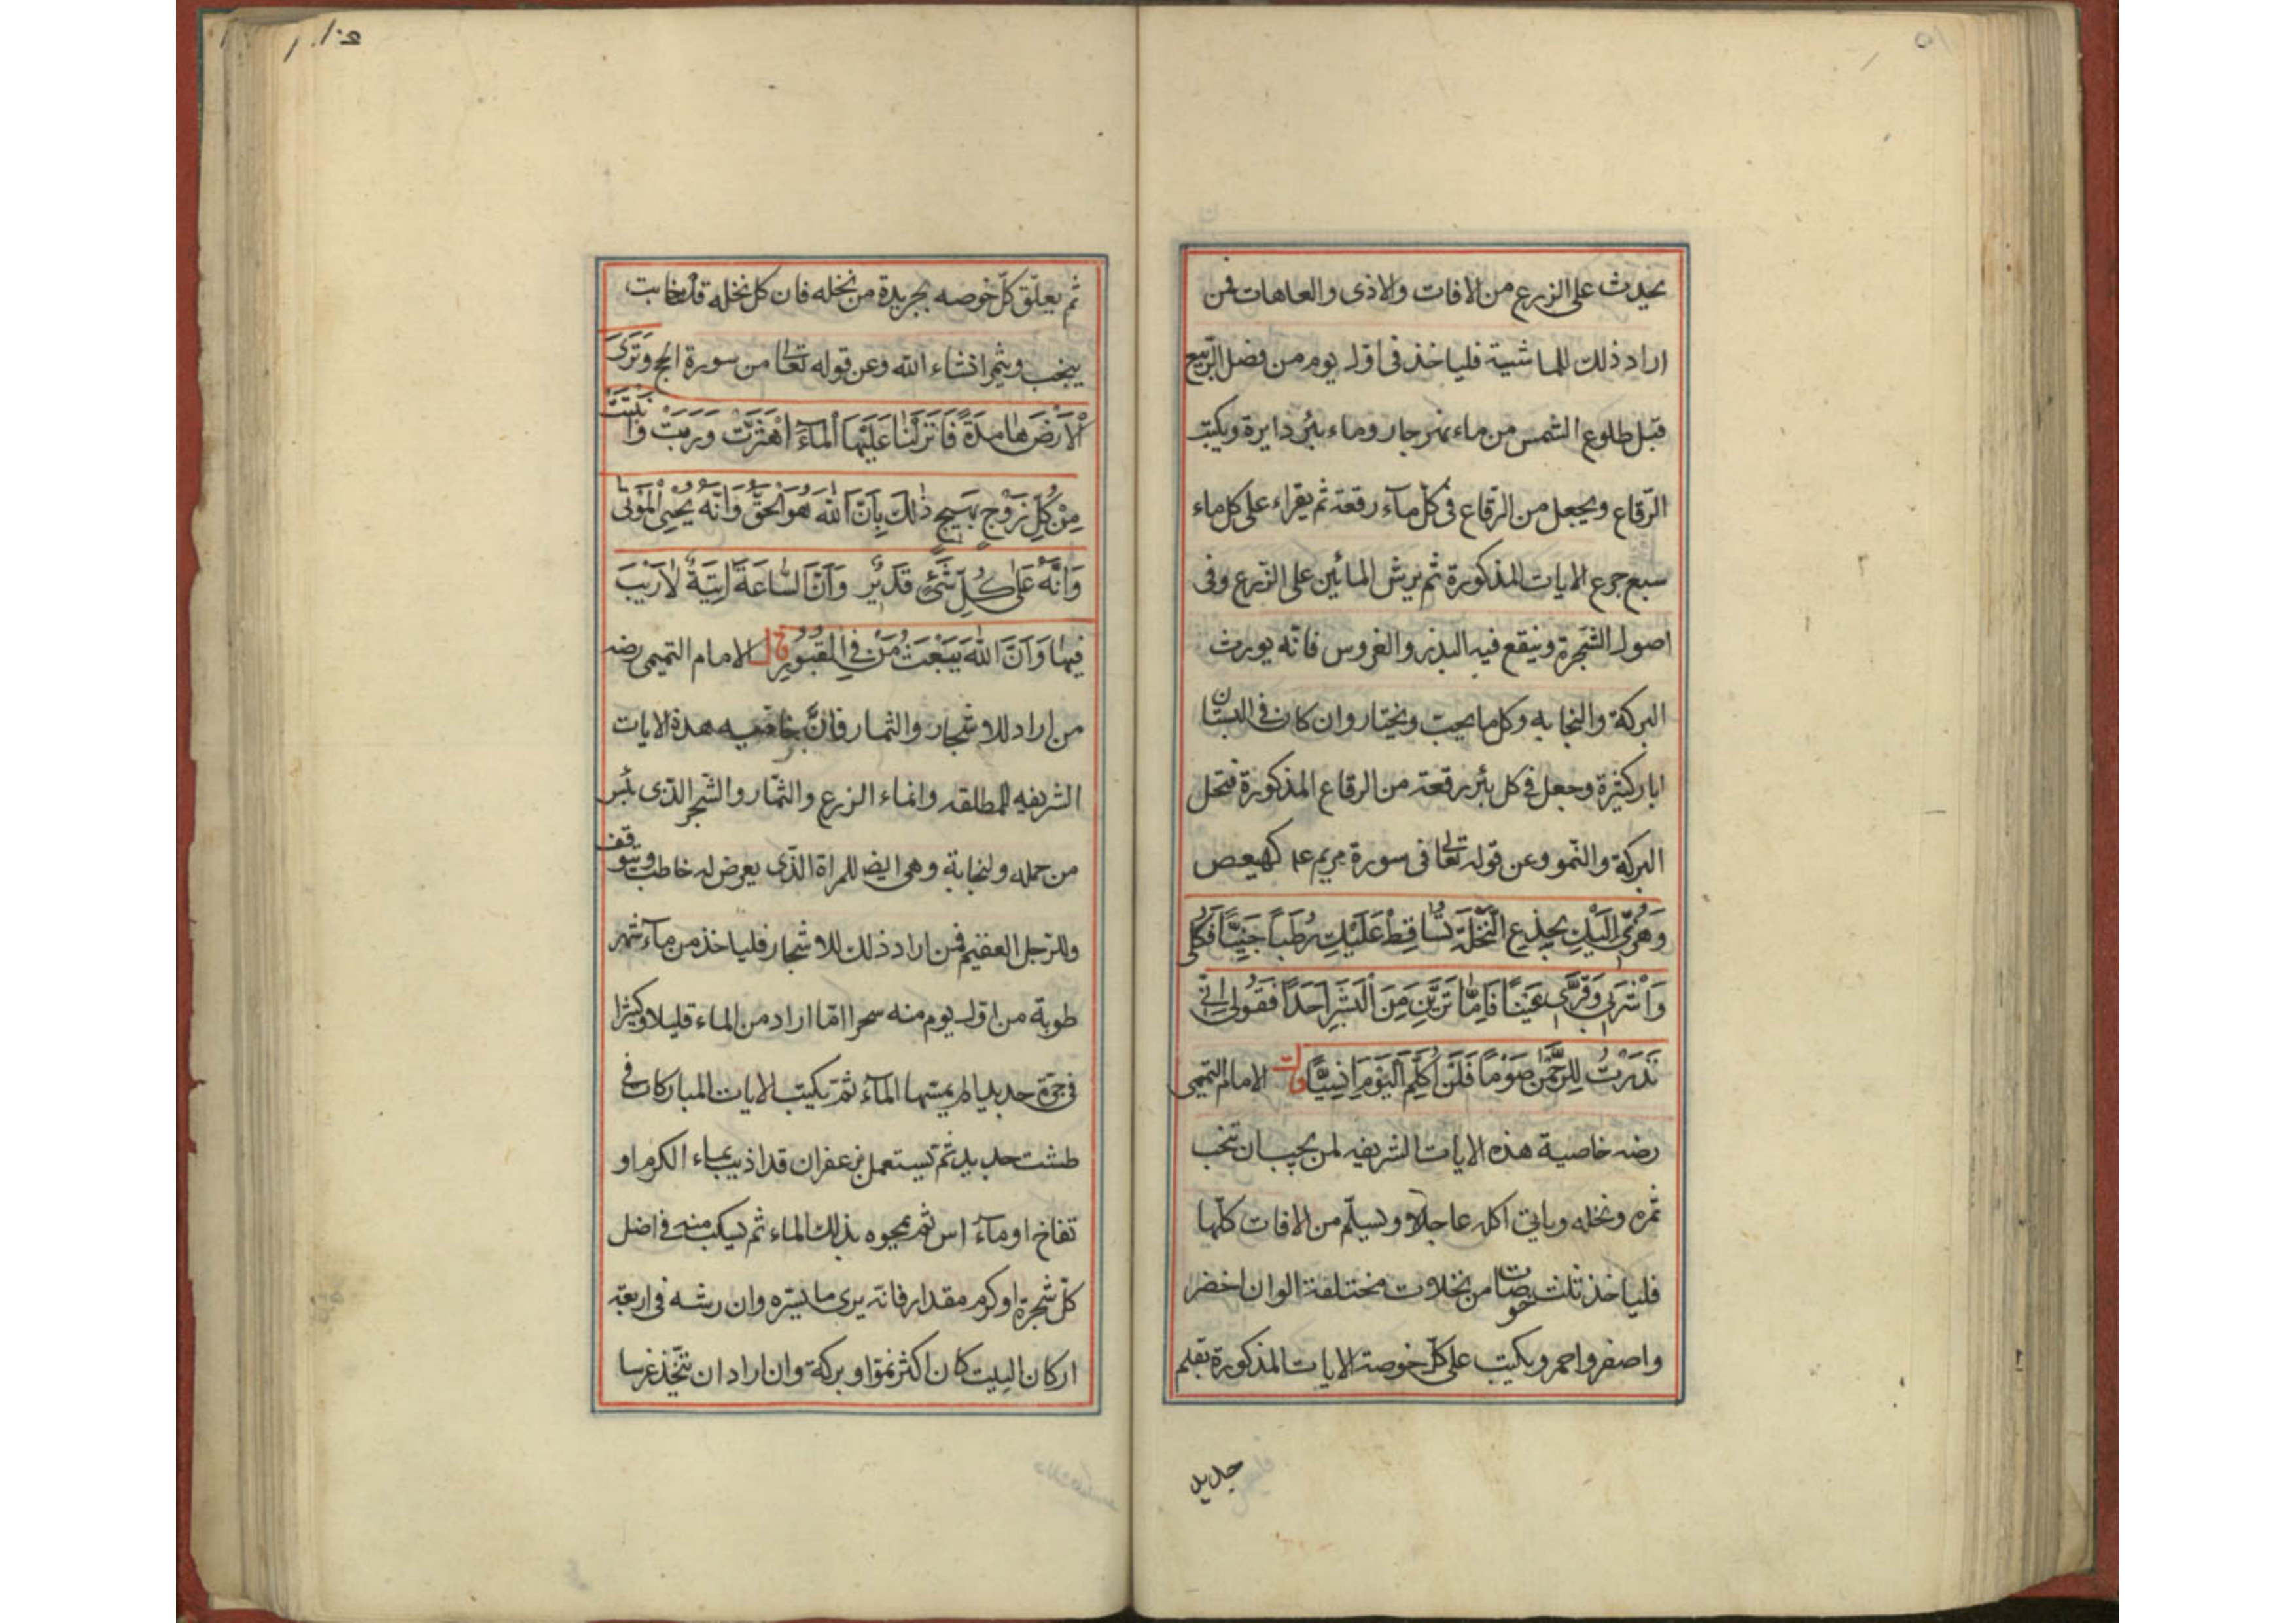 يحدث على الزرع من الافات والاذى والعاهات فمن
اراد ذلك للماشية فلياخذ فى اول يوم من فصل الربيع
قبل طلوع الشمس من ماء نهر جار وماء بئر دايرة ويكتب
الرّقاع ويجعل من الرقاع فى كل مآء رقعة ثم يقراء على كل ماء
سبع جرع الايات المذكورة ثم يرش المائين على الزرع وفى
اصول الشجرة وينقع فيه البذر والغروس فانّه يورث
البركة والنجابه وكل ما يحب ويختار وان كان فى البستان
ابار كثيرة وجعل فى كل بئر رقعة من الرقاع المذكورة فتحل
البركة والنمو وعن قوله تعالى فى سورة مريم عم كهيعص
وَهُزِّى اِلَيْكِ بِجِذْعِ النَّخْلَةِ تُسَاقِطْ عَلَيْكِ رُطَبًا جَنِيًّا فَكُلِى
وَاشْرَبِى وَقَرِّى عَيْنًا فَاِمَّا تَرَيِنَّ مِنَ الْبَشَرِ اَحَدًا فَقُولِى اِنِّى
نَذَرْتُ لِلرَّحْمٰنِ صَوْمًا فَلَنْ اُكَلِّمَ الْيَوْمَ اِنْسِيًّا قال الامام التميمى
رضه خاصية هذه الايات الشريفه لمن يحب ان تنجب
ثمره ونخله وياتى اكله عاجلا ويسلم من الافات كلّها
فلياخذ ثلث خوصات من نخلات مختلفة الوان اخضر
واصفر واحمر ويكتب على كلّ خوصة الايات المذكورة بقلم
جديد
ثم يعلّق كلّ خوصه بجريدة من نخله فان كل نخله قد خابت
ينجب ويثمر انشاء الله وعن قوله تعالى من سورة الحج وَتَرَى
الْاَرْضَ هَامِدَةً فَاِذَا اَنْزَلْنَا عَلَيْهَا الْمَآءَ اهْتَزَّتْ وَرَبَتْ وَاَنْبَتَتْ
مِنْ كُلِّ زَوْجٍ بَهِيجٍ ذٰلِكَ بِاَنَّ اللّٰهَ هُوَ الْحَقُّ وَاَنَّهُ يُحْيِى الْمَوْتٰى
وَاَنَّهُ عَلٰى كُلِّ شَىْءٍ قَدِيرٌ وَاَنَّ السَّاعَةَ اٰتِيَةٌ لَا رَيْبَ
فِيهَا وَاَنَّ اللّٰهَ يَبْعَثُ مَنْ فِى الْقُبُورِ قال الامام التميمى رضه
من اراد للاشجار والثمار فانّ هذه الايات
الشريفه المطلقه وانماء الزرع والثمار والشجر الذى
من حمله ولنجابة وهى ايضا للمراة الذّى يعرض له خاطب ويتوقف
وللرّجل العقيم فمن اراد ذلك للاشجار فلياخذ من مآء شهر
طوبة من اول يوم منه سحرا امّا اراد من الماء قليلا وكثيرا
فى جرّة جديد لم يمسّها المآء ثم تكتب الايات المباركات فى
طشت جديد ثم تستعمل بزعفران قد اذيب بماء الكرم او
تفاح او مآء اس ثم يمحوه بذلك الماء ثم يسكب منه فى اضل
كلّ شجرة او كرم مقدار فانه يرى ما يسّره وان رشه فى اربعة
اركان البيت كان اكثر نموّا وبركة وان اراد ان يتّخذ غرسا